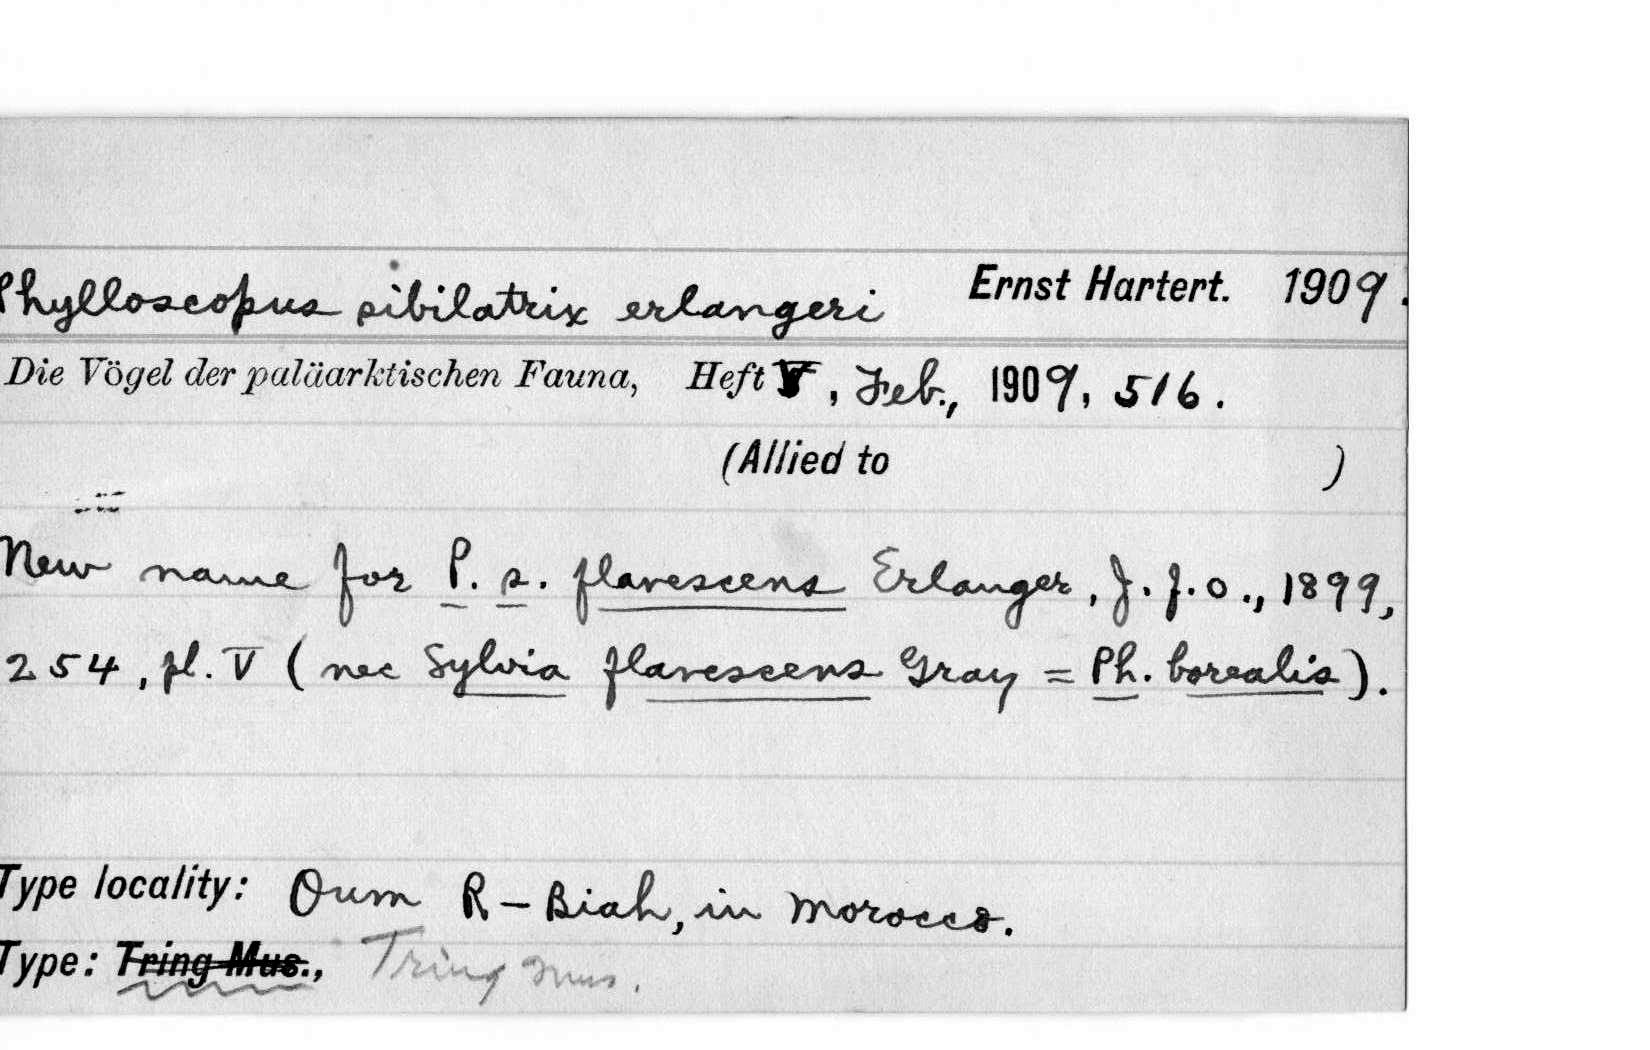 Phylloscopus sibilatrix erlangeri Ernst Hartert. 1909.
Die Vögel der paläarktischen Fauna, Heft V, Feb., 1909, 516.
(Allied to )
New name for P. s. flavescens Erlanger, J. f. O., 1899,
254, pl. V (nec Sylvia flavescens Gray = Ph. borealis).
Type locality: Oum R-Biah, in Morocco.
Type: Tring Mus., Tring Mus.